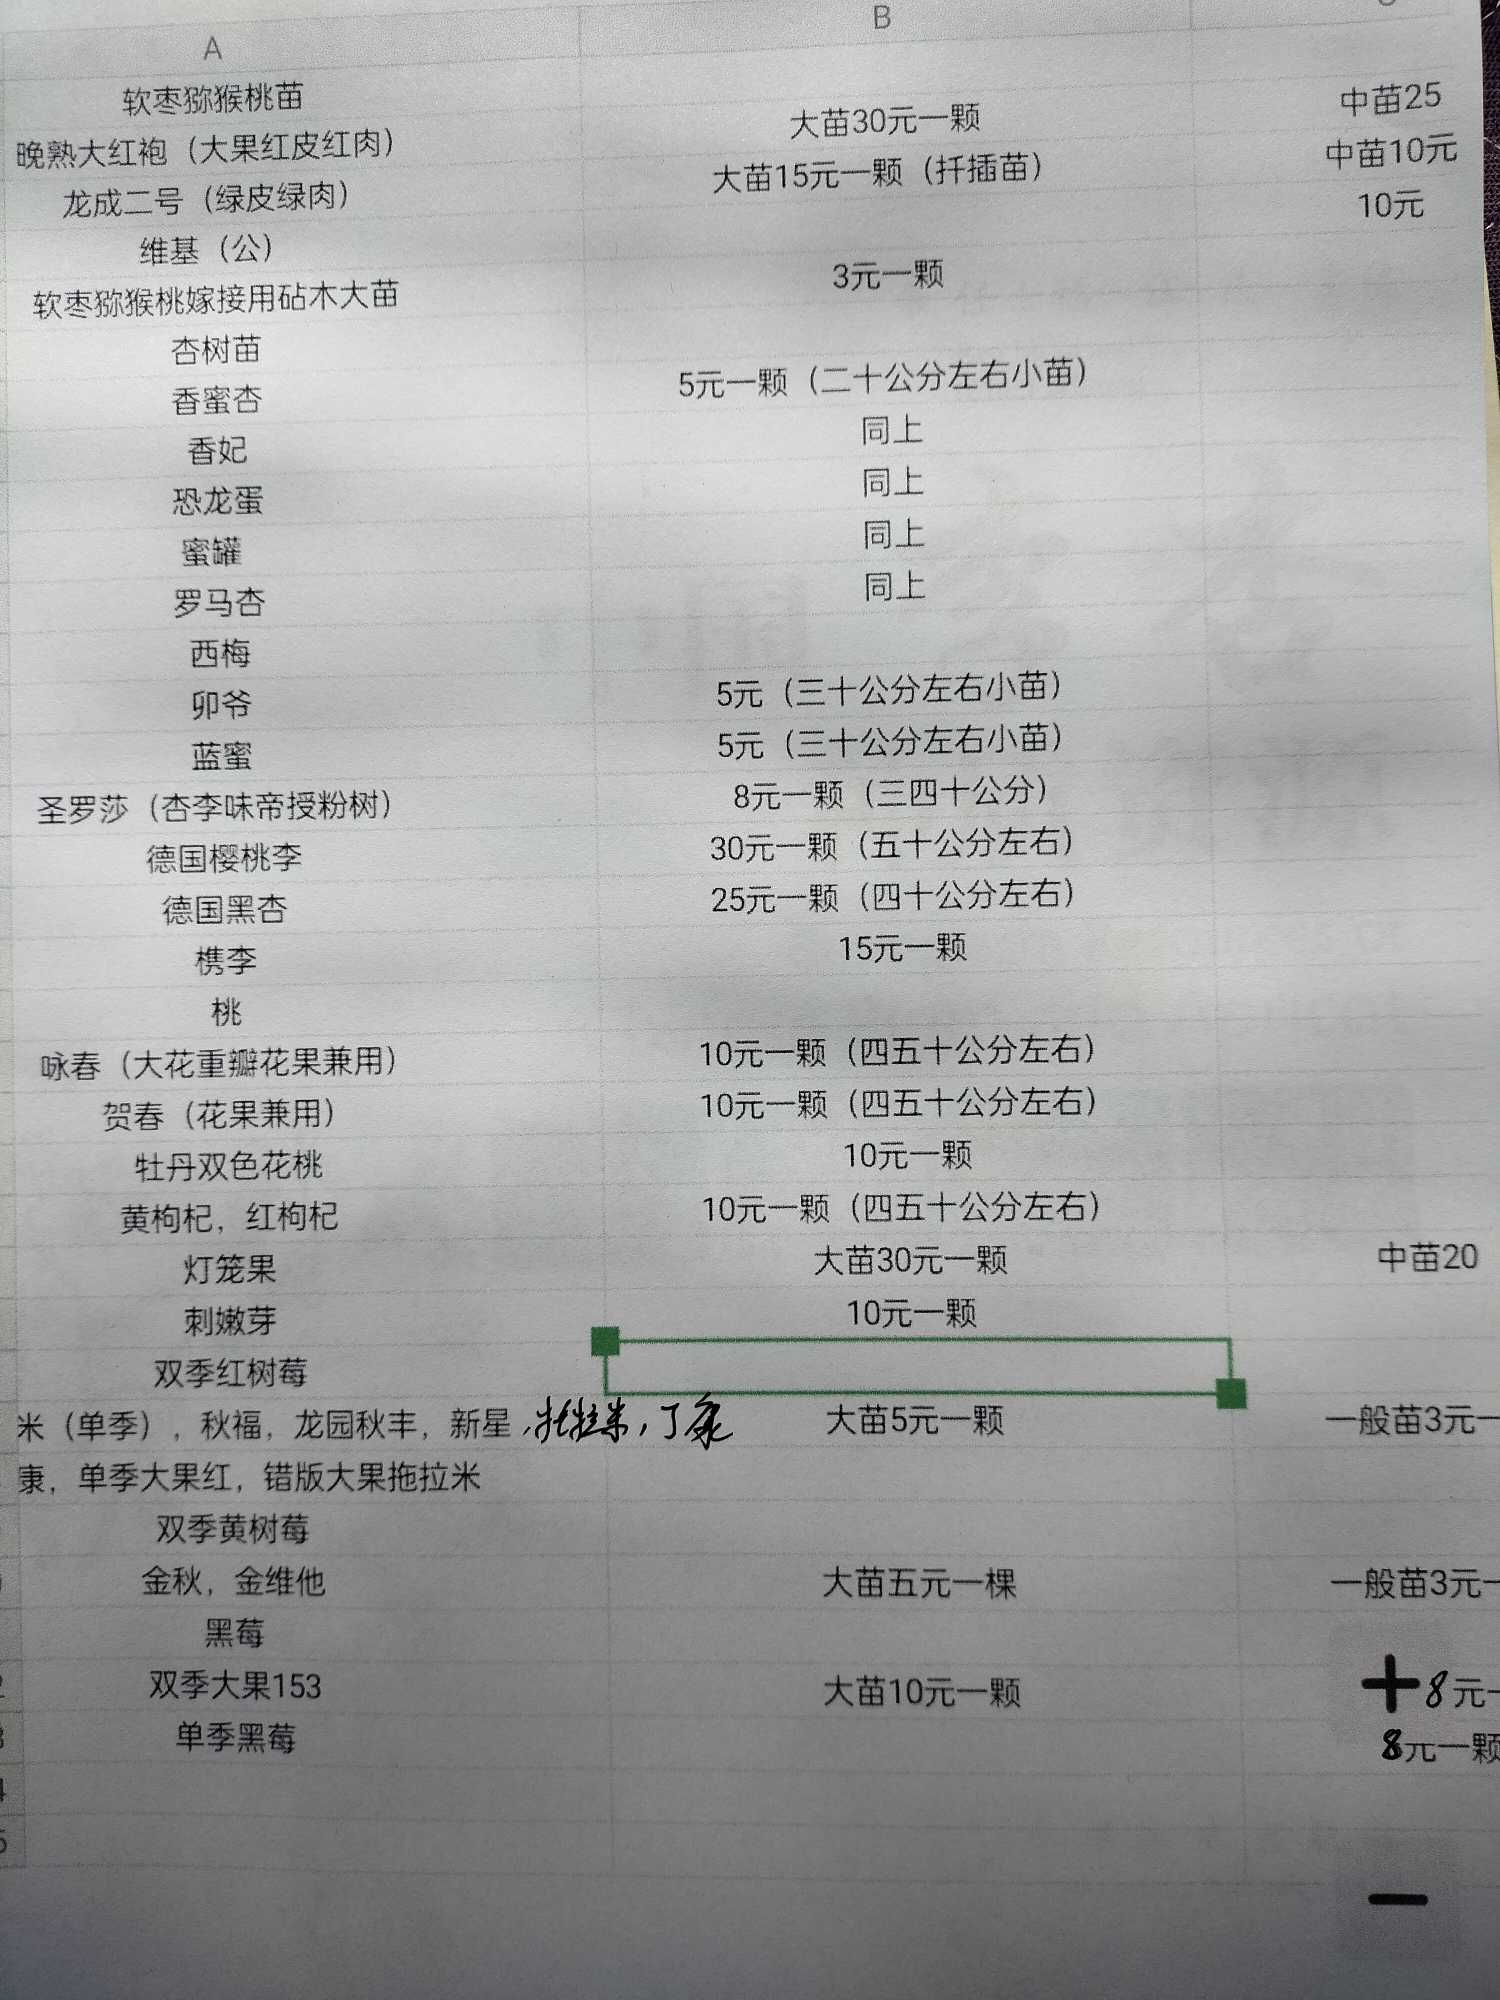 A B
软枣猕猴桃苗
晚熟大红袍（大果红皮红肉） 大苗30元一颗 中苗25
龙成二号（绿皮绿肉） 大苗15元一颗（扦插苗） 中苗10元
维基（公） 10元
软枣猕猴桃嫁接用砧木大苗 3元一颗
杏树苗
香蜜杏 5元一颗（二十公分左右小苗）
香妃 同上
恐龙蛋 同上
蜜罐 同上
罗马杏 同上
西梅
卵爷 5元（三十公分左右小苗）
蓝蜜 5元（三十公分左右小苗）
圣罗莎（杏李味帝授粉树） 8元一颗（三四十公分）
德国樱桃李 30元一颗（五十公分左右）
德国黑杏 25元一颗（四十公分左右）
槜李 15元一颗
桃
咏春（大花重瓣花果兼用） 10元一颗（四五十公分左右）
贺春（花果兼用） 10元一颗（四五十公分左右）
牡丹双色花桃 10元一颗
黄枸杞，红枸杞 10元一颗（四五十公分左右）
灯笼果 大苗30元一颗 中苗20
刺嫩芽 10元一颗
双季红树莓
米（单季），秋福，龙园秋丰，新星，托拉米，丁康 大苗5元一颗 一般苗3元一
康，单季大果红，错版大果拖拉米
双季黄树莓
金秋，金维他 大苗五元一棵 一般苗3元一
黑莓
双季大果153 大苗10元一颗 8元一
单季黑莓 8元一颗